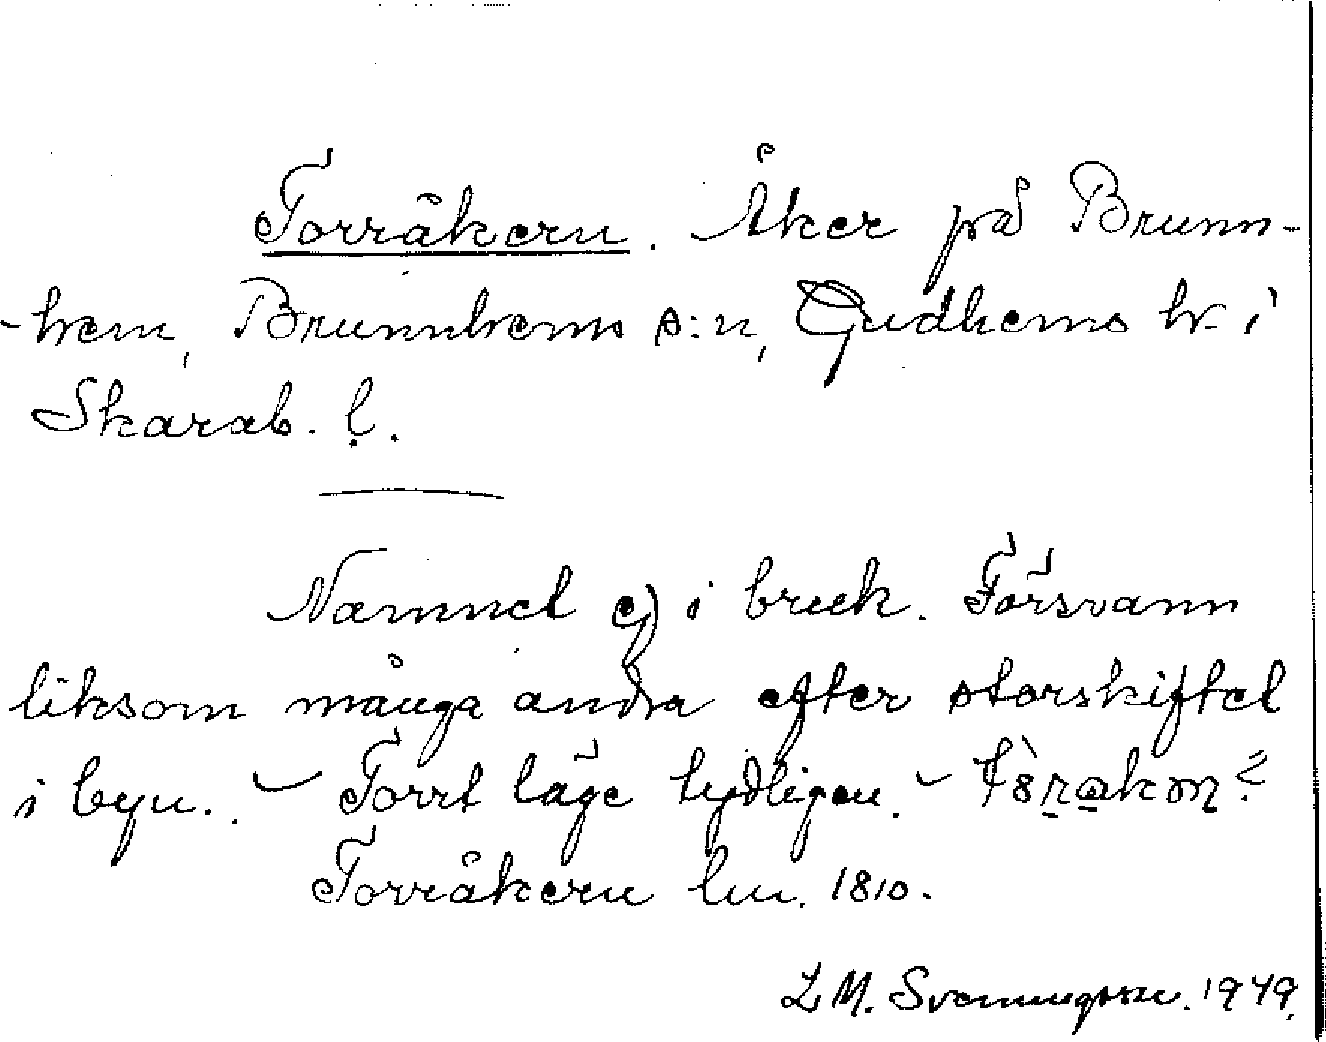 Torråkern. Åker på Brunn-
-hem, Brunnhems s:n, Gudhems hr i
Skarab. l.
Namnet ej i bruk. Försvann
liksom många andra efter storskiftet
i byn. - Torrt läge tydligen. -
Torråkern lm. 1810.
L M. Svenungsson. 1949.